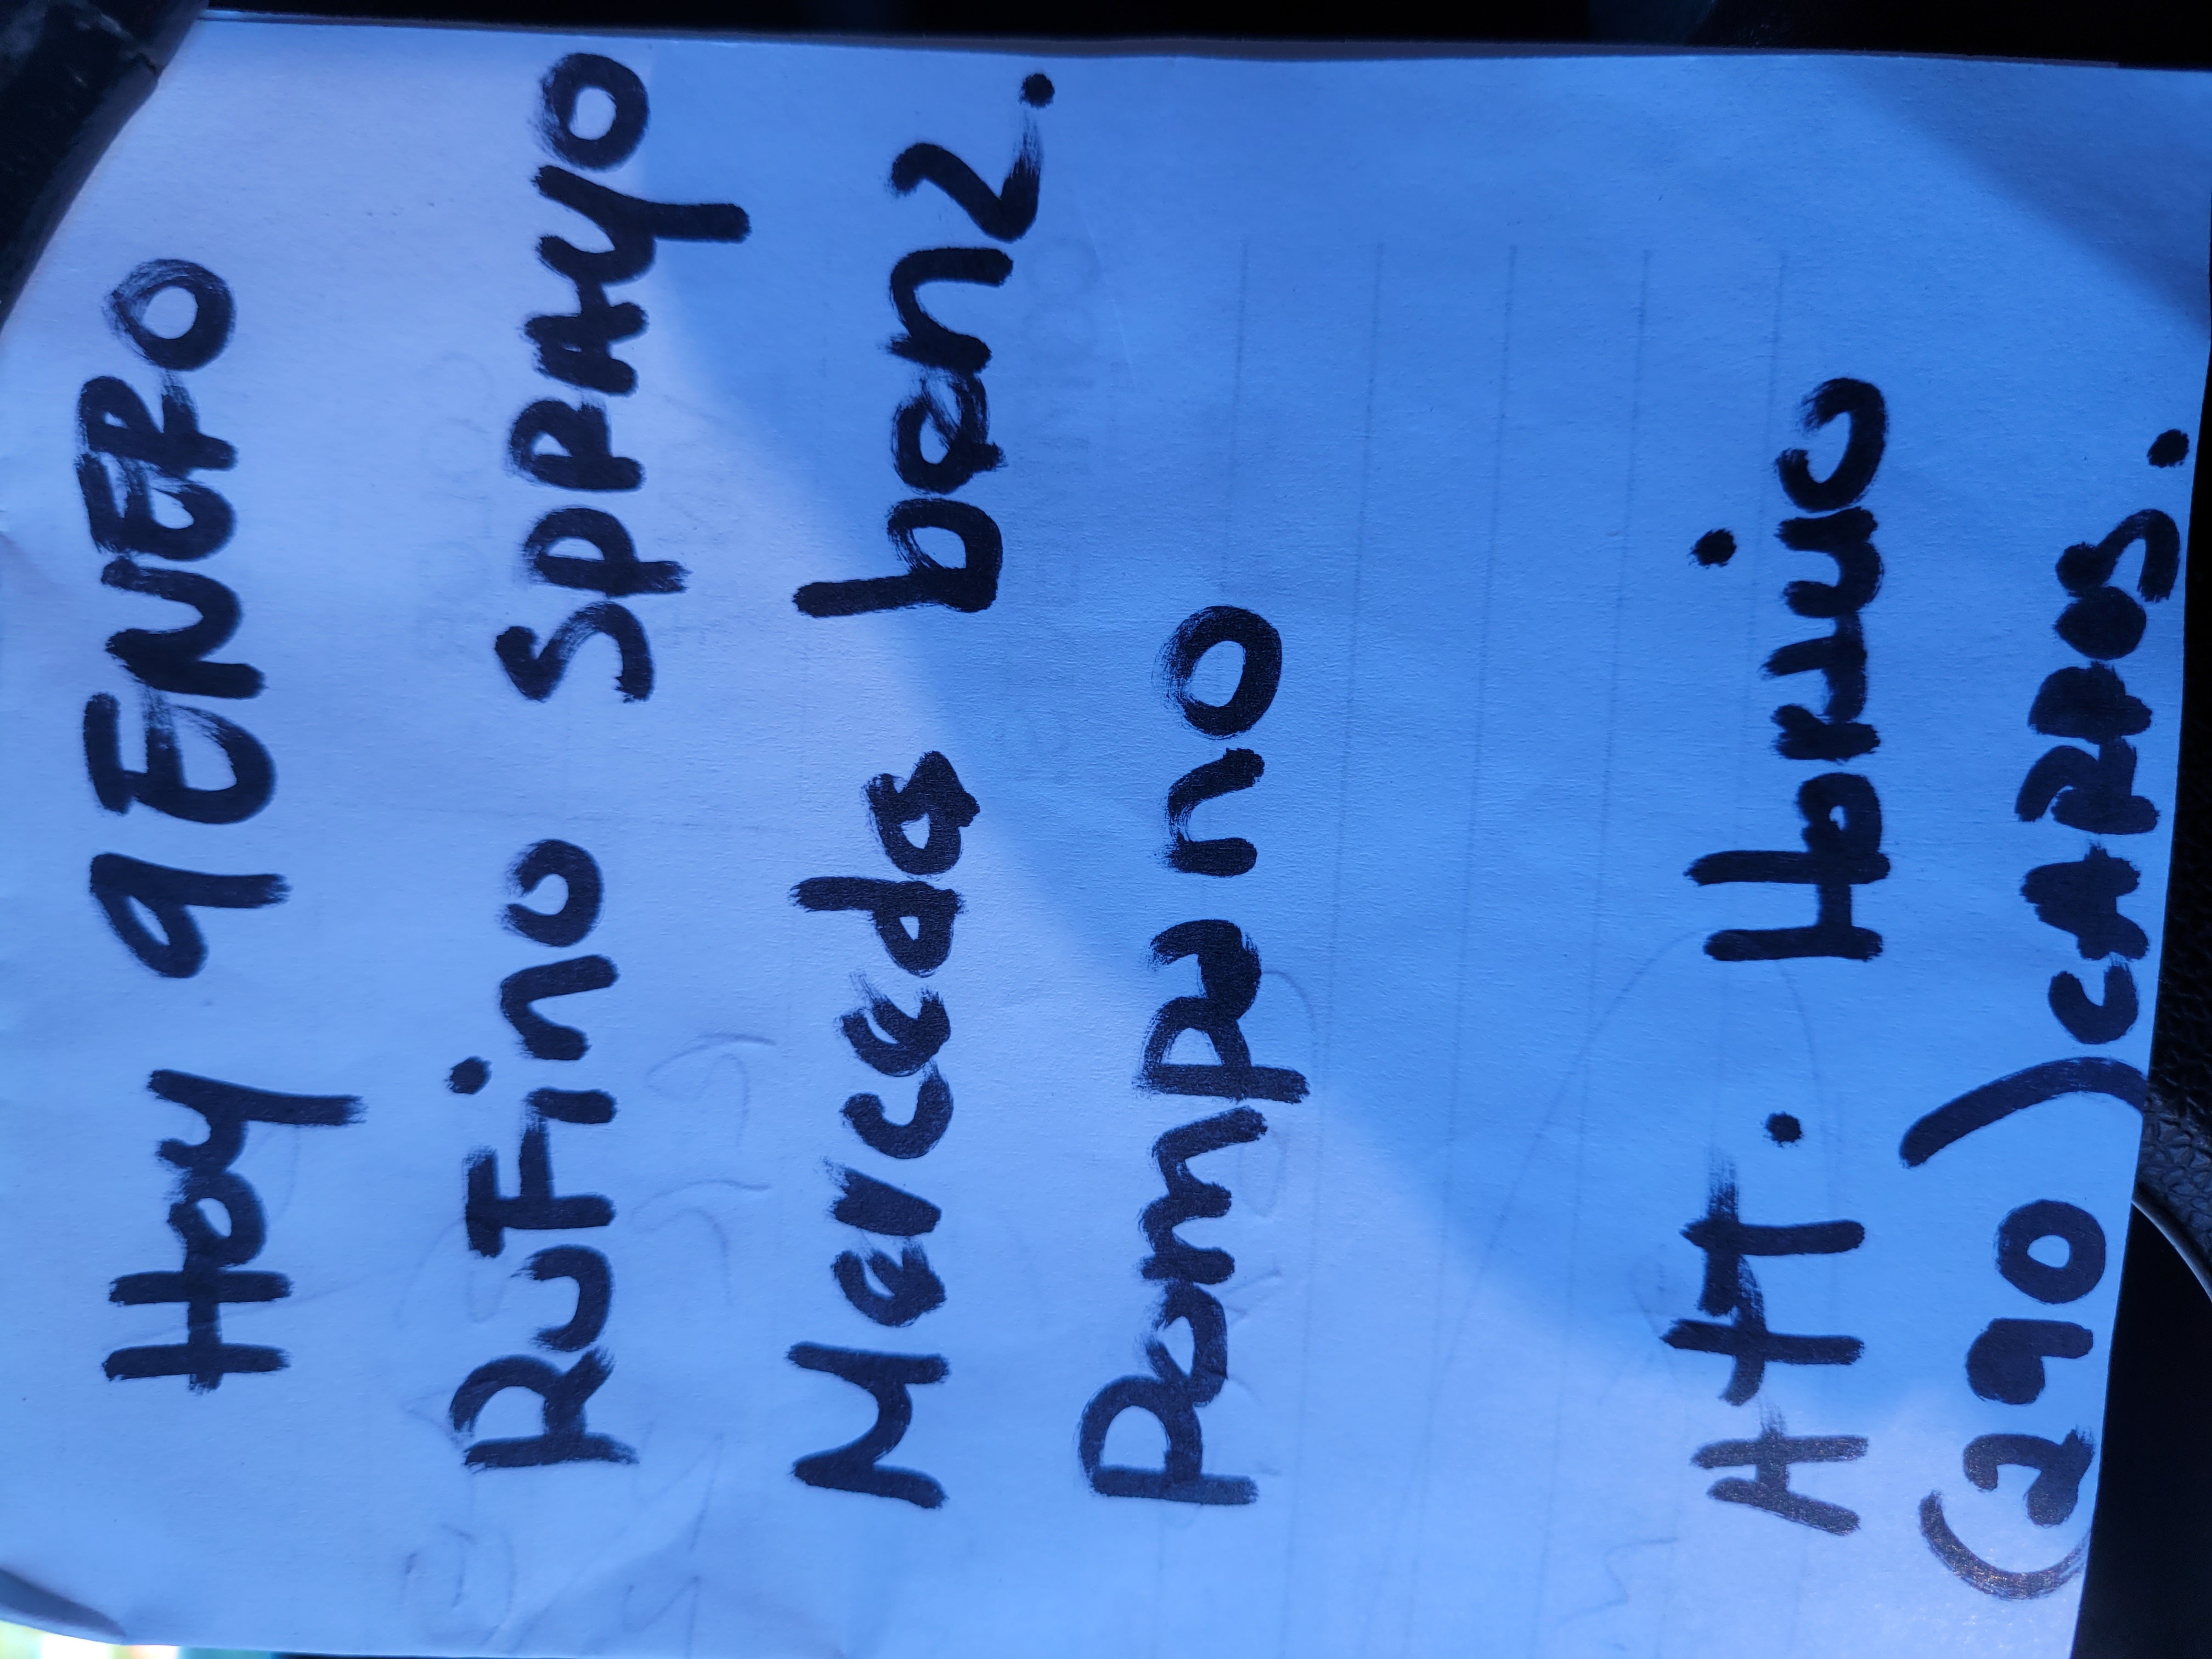 Hoy 9 ENERO
RuFino SPRAYO
Merceda banz.
Pampu no
ATT. Horuio
(290) CARROS.